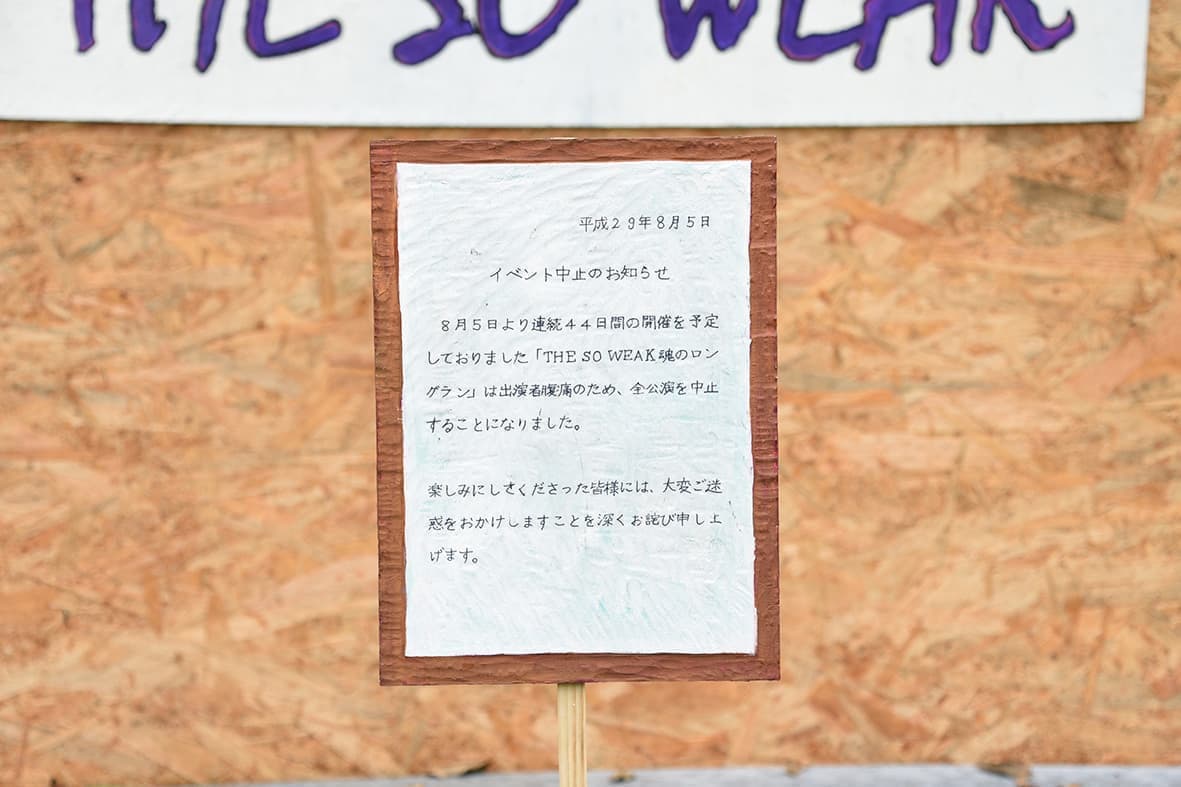 THE SO WEAK
平成29年8月5日
イベント中止のお知らせ
8月5日より連続44日間の開催を予定
しておりました「THE SO WEAK魂のロン
グラン」は出演者腹痛のため、全公演を中止
することになりました。
楽しみにしてくださった皆様には、大変ご迷
惑をおかけしますことを深くお詫び申し上
げます。